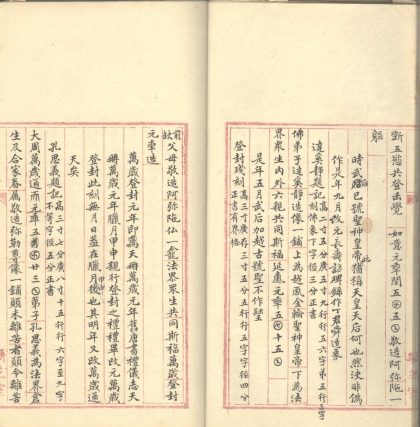 斷五慾共登出覺　如意元年閏五𠥱五乙敬造阿弥陁一
軀
時武后已號聖神皇帝猶稱天皇天后何也然決非僞
作是年九月改元長壽訪碑錄作丁君舜造象
達奚靜題記高二寸五分廣五寸九分行五六字第五行三字
刻佛象下字徑三分正書
佛弟子達奚靜造像一鋪上為越古金輪聖神皇帝下為法
界衆生內外六親共同斯福延載元年五𠥱十五乙
是年五月武后加越古號聖不作𨲢
登封殘刻高三寸廣存三寸五分五行行五字字徑四分
正書有界格
前
故父母敬造阿弥陁仏一龕法界衆生共同斯福萬歲登封
元年造
萬歲登封元年即萬天冊萬歲元年舊唐書禮儀志天
冊萬歲元年臘月甲申親行登封之禮禮畢改元萬歲
登封此刻無月日蓋在臘月後也其明年又改萬歲通
天矣
孔思義題記高三寸七分廣八寸十五行行六字至九字
不等字徑五分正書
大周萬歲通而元年五𠥱廿三乙弟子孔思義為法界倉
生及合家眷属敬造弥勒尊像一鋪顛未離苦者願令離苦